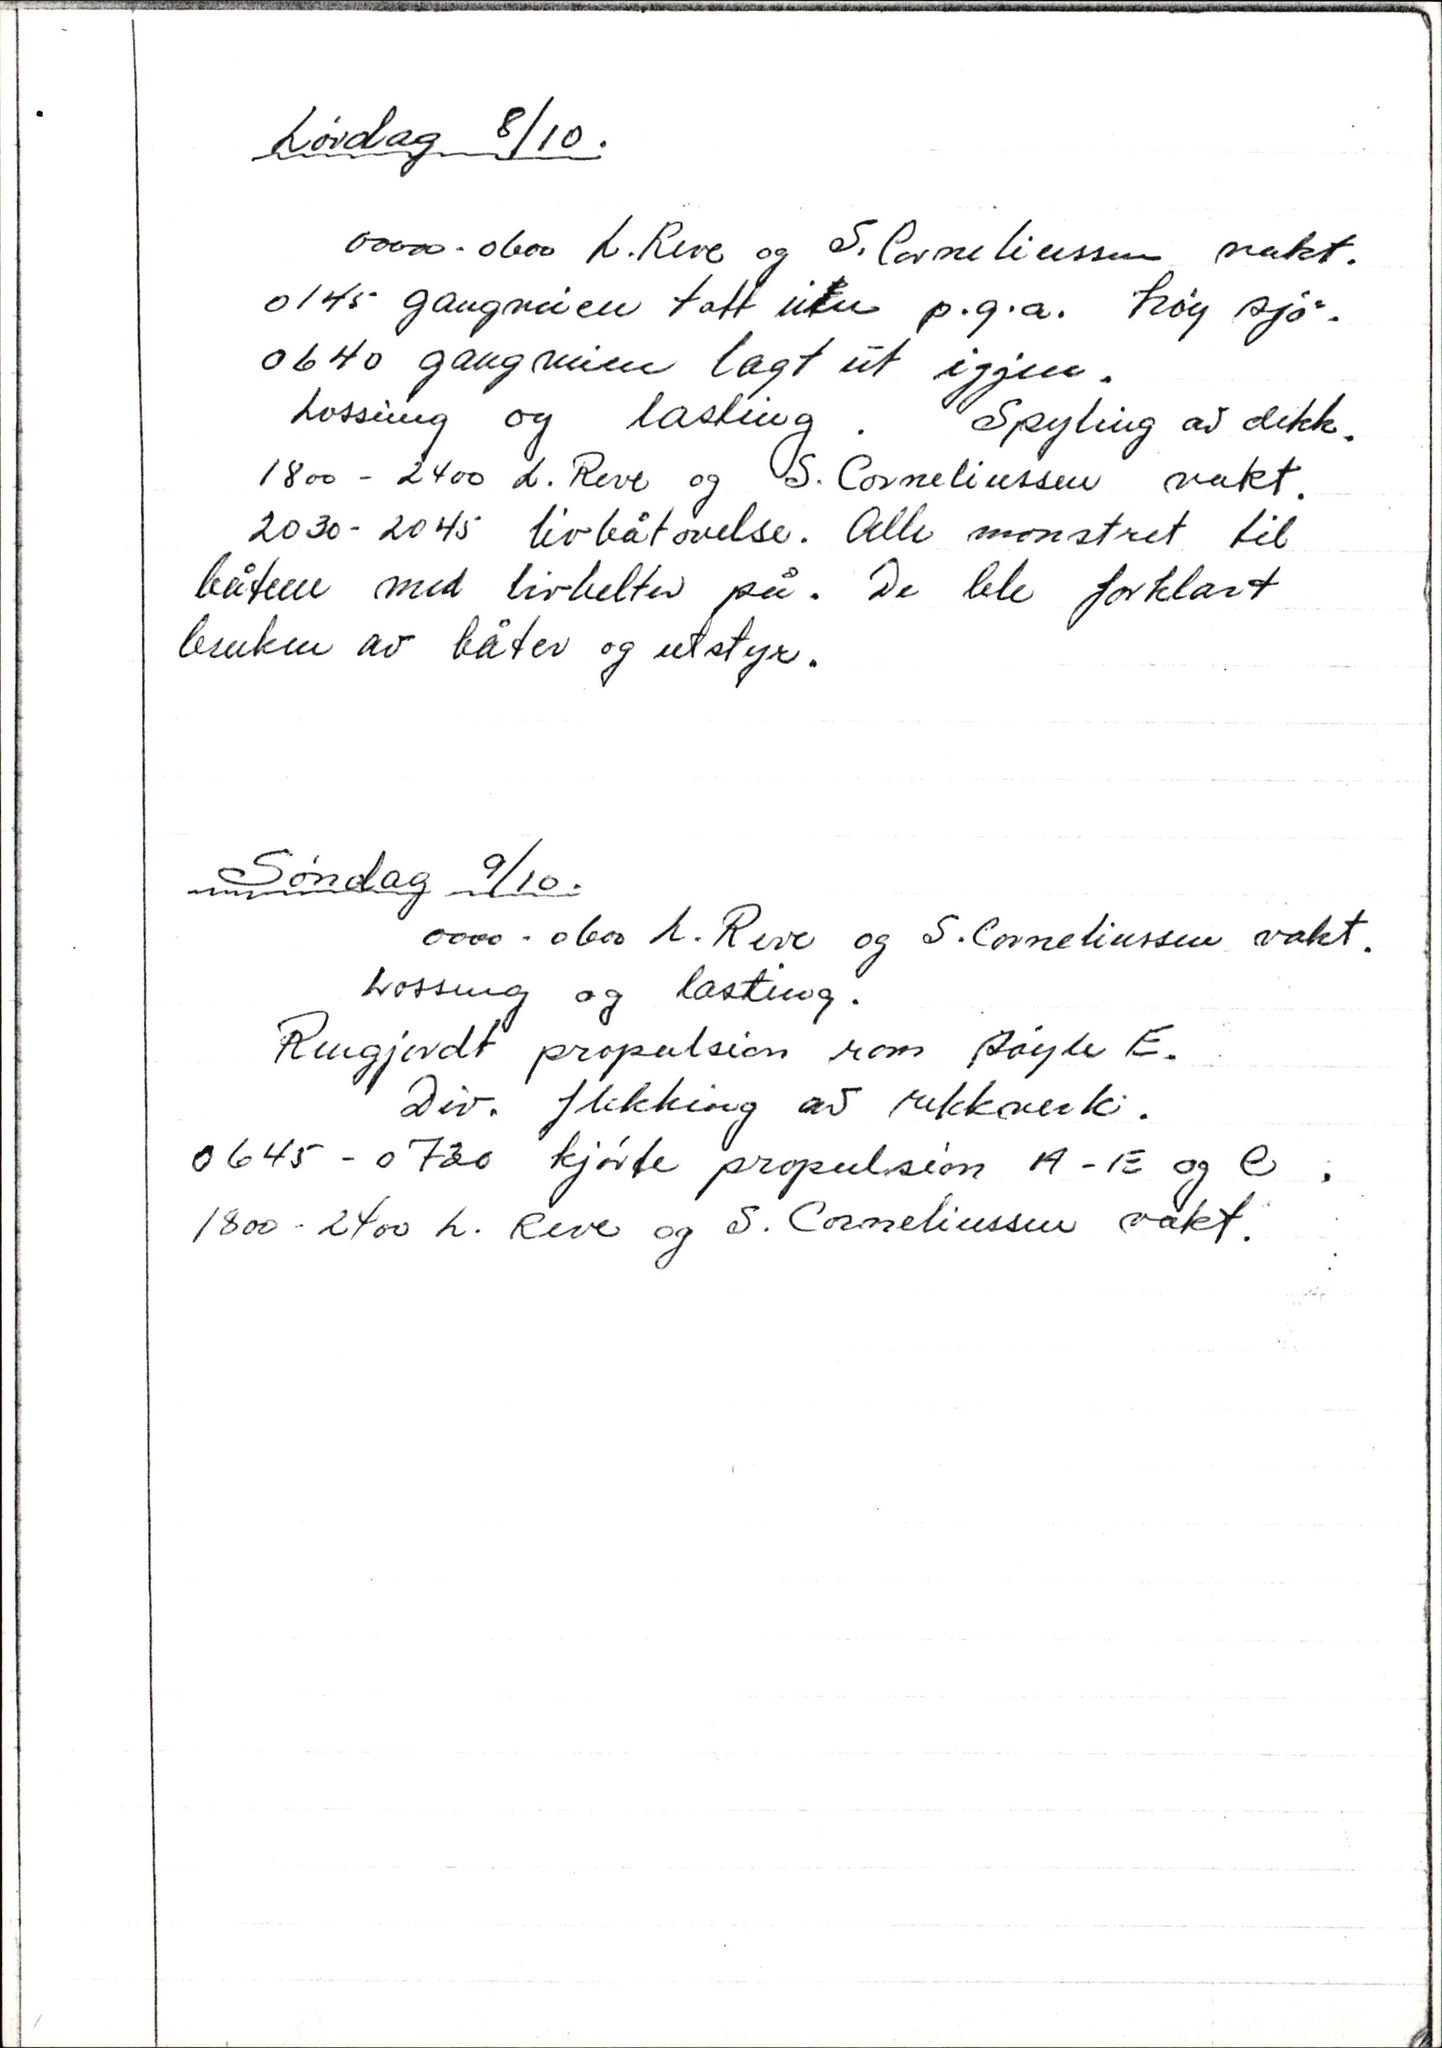 Lørdag 8/10.
0000-0600 L. Reve og S. Corneliussen vakt.
0145 gangveien tatt inn p.g.a. høy sjø.
0640 gangveien lagt ut igjen.
Lossing og lasting. Spyling av dekk.
1800-2400 L. Reve og S. Corneliussen vakt.
2030-2045 livbåtøvelse. Alle mønstret til
båtene med livbelter på. De ble forklart
bruken av båter og utstyr.
Søndag 9/10.
0000-0600 L. Reve og S. Corneliussen vakt.
Lossing og lasting.
Rengjordt propulsion rom søyle E.
Div. flekking av rekkverk.
0645-0720 kjørte propulsion A-E og C.
1800-2400 L. Reve og S. Corneliussen vakt.